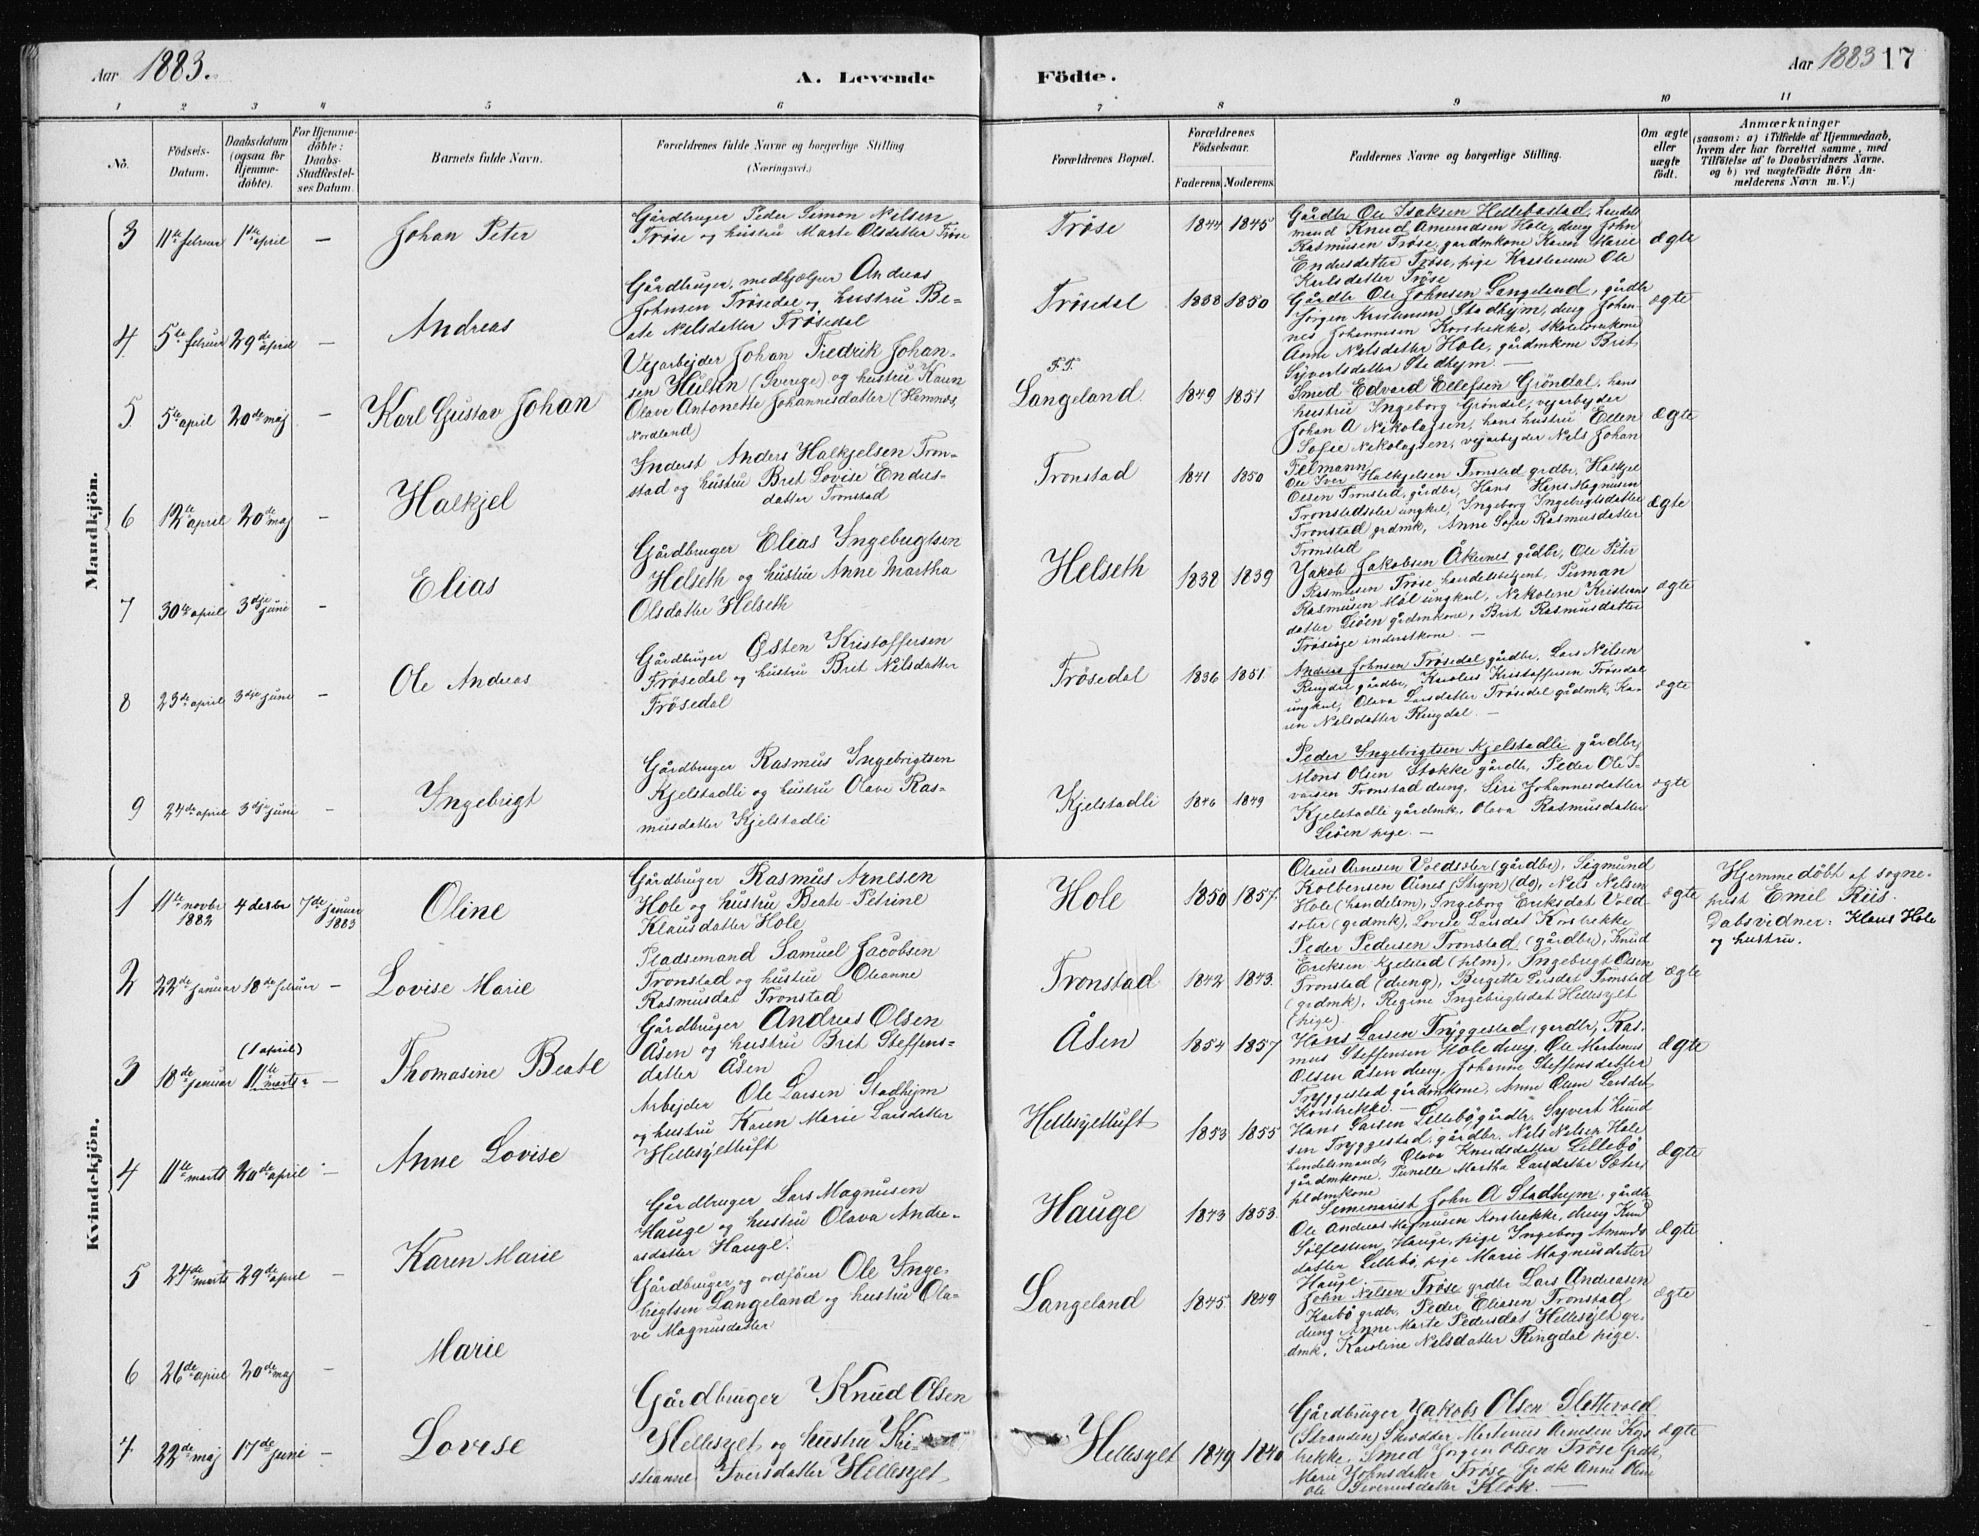 Aar 1883.
A. Levende
Födte.
Aar 1883 17
1 2 3 4 5 6 7 8 9 10 11
No.
Födsels-
Datum.
Daabsdatum
(ogsaa for
Hjemme-
döbte).
For Hjemme-
döbte:
Daabs-
Stadfæstel-
ses Datum.
Barnets fulde Navn.
Forældrenes fulde Navne og borgerlige Stilling
(Næringsvei.)
Forældrenes Bopæl.
Forældrenes
Födselsaar.
Faderens. Moderens.
Faddernes Navne og borgerlige Stilling.
Om ægte
eller
uægte
födt.
Anmærkninger
(saasom: a) i Tilfælde af Hjemmedaab,
hvem der har forrettet samme, med
Tilföielse af to Daabsvidners Navne.
og b) ved uægtefödte Börn An-
melderens Navn m. V.)
Mandkjön.
3 11te februar 1ste april — Johan Peter
Gårdbruger Peder Simon Nilsen
Trøse og hustru Marte Olsdatter Trøse
Trøse 1844 1845
Gårdbr Ole Isaksen Hellebostad, handels
mand Knud Amundsen Hole, dreng John
Rasmusen Trøse, gardmkone Karen Marie
Endresdatter Trøse, pige Kristianna Ole
Karlsdatter Trøse
ægte
4 5te februar 29de april — Andreas
Gårdbruger, medhjælper Andreas
Johnsen Trøsedal og hustru Be-
ate Nilsdatter Trøsedal
Trøsedal 1838 1850
Gårdbr Ole Johnsen Langeland, gårdbr
Jørgen Kristensen Stadhejm, dreng Johan-
nes Johannesen Korsbrekke, skolelærerkone
Anne Nilsdatter Hole, gårdmkone Brit
Syvertsdatter Stadhejm. —
ægte
5 5te april 20de maj — Karl Gustav Johan
Vejarbejder Johan Fredrik Johan-
sen Hultin (Sverige) og hustru Karen
Olava Antonette Johannesdatter (Hemnæs,
Nordland)
F.T.
Langeland 1849 1851
Smed Edvard Ellefsen Gröndal, hans
hustru Ingeborg Gröndal, vejarbejder
Johan A Nikolajsen, hans hustru Ellen
Sofie Nikolajsen, vejarbejder Nils Johan
Telmann
ægte
6 12te april 20de maj — Halkjel
Inderst Anders Halkjelsen Tron-
stad og hustru Brit Lovise Endres-
datter Tronstad
Tronstad 1841 1850
Ole Iver Halkjelsen Tronstad grdbr, Halkjel
Olsen Tronstad, gårdbr, Hans Hans Magnusen
Tronstadsæter ungkarl, Ingeborg Ingebrigtsdatter
Tronstad grdmk, Anne Sofie Rasmusdatter
Tronstad
ægte
7 30te april 3dje juni — Elias
Gårdbruger Elias Ingebrigtsen
Helseth og hustru Anne Martha
Olsdatter Helseth
Helseth 1838 1839
Jakob Jakobsen Åkernes gårdbr, Ole Peter
Rasmusen Trøse handelsbetjent,
Rasmusen Møl ungkarl, Nikoline Kristians
datter Liöen gårdmkone, Brit Rasmusdatter
Trøsøge inderstkone. —
ægte
8 23de april 3dje juni — Ole Andreas
Gårdbruger Østen Kristoffersen
Trøsedal og hustru Brit Nilsdatter
Trøsedal
Trøsedal 1836 1851
Andreas Johnsen Trøsedal gårdbr, Lars Nilsen
Ringdal gårdbr, Karolus Kristoffersen Trøsedal
ungkarl, Olava Larsdatter Trøsedal gårdmk, Ka-
ren Nilsdatter Ringdal. —
ægte
9 24de april 3dje juni — Ingebrigt
Gårdbruger Rasmus Ingebrigtsen
Kjelstadli og hustru Olave Ras-
musdatter Kjelstadli
Kjelstadli 1846 1849
Peder Ingebrigtsen Kjelstadli gårdbr,
Mons Olsen Stokke gårdbr, Peder Ole I-
varsen Tronstad dreng, Siri Johannesdatter
Kjelstadli gårdmk, Olava Rasmusdatter
Liöen pige. —
ægte
Kvindekjön.
1 11te novbr 1882 4 desbr 7de januar 1883 Oline
Gårdbruger Rasmus Arnesen
Hole og hustru Beate-Petrine
Klausdatter Hole
Hole 1850 1857
Olaus Arnesen Voldsæter (gårdbr), Sigmund
Kolbensen Åsnes (Stryn) (do), Nils Nilsen
Hole (handelsm), Ingeborg Eriksdat Vold-
sæter (grdmk), Lovise Larsdat Korsbrekke
ægte
Hjemmedöbt af sogne-
prest Emil Riis.
Dabsvidner: Klaus Hole
og hustru.
2 22de januar 18de februar — Lovise Marie
Pladsemand Samuel Jacobsen
Tronstad og hustru Oleanne
Rasmusdat Tronstad
Tronstad 1842 1843
Peder Pedersen Tronstad (gårdbr), Knud
Eriksen Kjelstad (plm), Ingebrigt Olsen
Tronstad (dreng), Birgitte Larsdat Tronstad
(grdmk), Regine Ingebrigtsdat Hellesylt
(pige)
ægte
3 18de januar (1 april) 11te marts — Thomasine Beate
Gårdbruger Andreas Olsen
Åsen og hustru Brit Steffens-
datter Åsen
Åsen 1854 1857
Hans Larsen Tryggestad (gardbr), Ras-
mus Steffensen Hole dreng, Ole Martinus
Olsen Åsen dreng, Johanne Steffensdatter
Tryggestad gårdmkone, Anne Oline Larsdat
Korsbrekke. —
ægte
4 11te marts 20de april — Anne Lovise
Arbejder Ole Larsen Stadhejm
og hustru Karen Marie Larsdatter
Hellesylttuft
Hellesylttuft 1853 1855
Hans Larsen Lillebö gårdbr, Syvert Knud
sen Tryggestad, gårdbr, Nils Nilsen Hole
handelsmand, Olava Knudsdatter Lillebö
gårdmkone, Pernille Martha Larsdatter Sæter,
pldmkone
ægte
5 24de marts 29de april — Karen Marie
Gårdbruger Lars Magnusen
Hauge og hustru Olava Andre-
asdatter Hauge.
Hauge 1843 1853
Seminarist John A Stadhejm, gårdbr
Ole Andreas Magnusen Korsbrekke, dreng Knud
Sölfestsen Hauge, pige Ingeborg Amunds
datter Lillebö, pige Marie Magnusdatter
Hauge. —
ægte
6 26de april 20de maj — Marie
Gårdbruger og ordförer Ole Inge-
brigtsen Langeland og hustru Ola-
ve Magnusdatter
Langeland 1845 1849
John Nilsen Trøse grdbr Lars Andreasen
Karbö grdbr, Peder Eliasen Tronstad
dreng Anne Marte Pedersdat Hellesylt gr-
dmk, Karoline Nilsdatter Ringdal pige.
ægte
7 22de maj 17de juni — Lovise
Gårdbruger Knud Olsen
Hellesylt og hustru Kri-
stianne Iversdatter Hellesylt
Hellesylt 1849 1840
Gårdbruger Jakobs Olsen Slettevold
(Stranden) Skrædder Martinus Arnesen Kors
brekke, Smed Jörgen Olsen Trøse Grdk,
Marie Johnsdatter Trøse Grdk Anne Oline
Ole Severinsdatter Klok. —
ægte